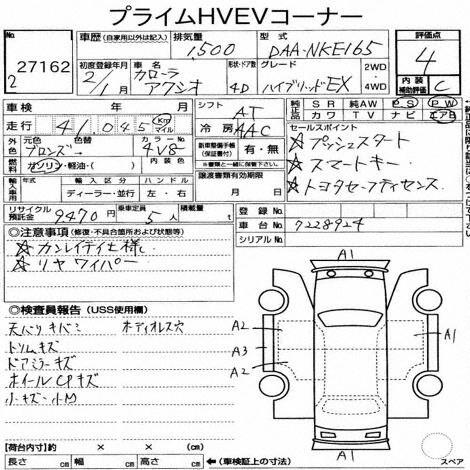 プライムHVEVコーナー
27162
2
車歴 (自家用以外は記入)
排気量 1,500
型式 DAA-NKE165
評価点 4
初度登録年月 2/1 年 月
車名 カローラ アクシオ
形状・ドア数 4D
グレード ハイブリッドEX
2WD・4WD
内装補助評価 C
車検 年 月
シフト AT
純正品 SR 純AW PS PW
社外品 カワ TV ナビ エアB
走行 41,045 Km マイル
冷房 AAC
セールスポイント
外装色 元色 色替 ブロンズ カラーNo. 4V8
新車整備手帳(保証書付) 有・無
※書類と一緒に保管
☆プッシュスタート
☆スマートキー
☆トヨタセーフティセンス
燃料 ガソリン・軽油・( ) 内装色
譲渡書類有効期限 月 日
輸入車用 年式 輸入区分 ハンドル
ディーラー・並行 左・右
リサイクル預託金 9470円 乗車定員 5人 積載量 t
登録No.
車台No. 7228924
シリアルNo.
◎注意事項 (修復・不具合箇所および状態等)
☆カンレイチ仕様
☆リヤワイパー
◎検査員報告 (USS使用欄)
天バリキバミ ボディオレス穴
トリムキズ
ドアミラーキズ
ホイールCPキズ
小キズ・小M
A1
A2
A3
A2
A1
A1
スペア
【荷台内寸】約 × ×
長さ cm 幅 cm 高さ cm ←(車検証上の寸法)